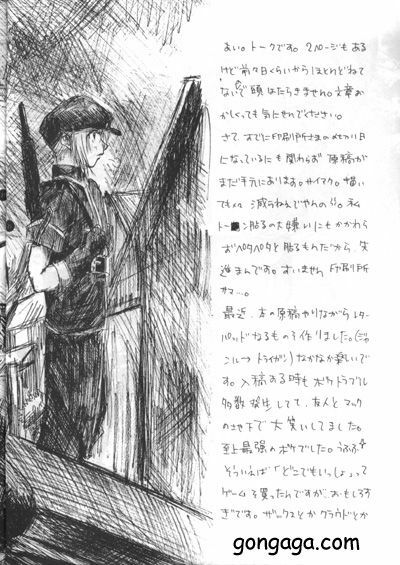 はい。トークです。2ページもある
けど前々日くらいからほとんどねて
ないので頭はたらきません。文章お
かしくっても気にせんでください。
さて、すでに印刷所さまのめ切り日
になっているにも関わらず 原稿が
まだ手元にあります。サイアク。描い
ても 減らねえでやんの 私
トーン貼るの大嫌いにもかかわら
ずペタペタと貼るもんだから、先
進まんです。すいません 印刷所
サマ…。
最近、本の原稿やりながらレター
パッドなるものを作りました。(ジャ
ンル→トライガン)なかなか楽しいで
す。入稿する時もボケトラブル
多数発生してて、友人とマック
の地下で大笑いしてました。
史上最強のボケでした。うふふ
そういえば「どこでもいっしょ」って
ゲームを買ったんですが…おもしろす
ぎです。ザックスとかクラウドとか
gongaga.com